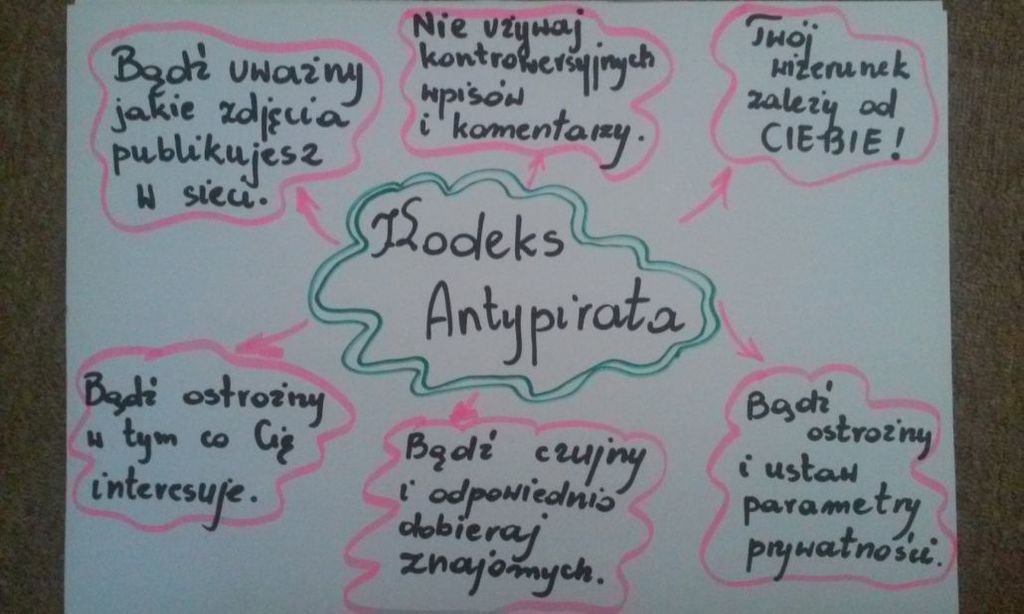 Bądź uważny
jakie zdjęcia
publikujesz
w sieci.
Nie używaj
kontrowersyjnych
wpisów
i komentarzy.
Twój
wizerunek
zależy od
CIEBIE!
Kodeks
Antypirata
Bądź ostrożny
w tym co Cię
interesuje.
Bądź czujny
i odpowiednio
dobieraj
znajomych.
Bądź
ostrożny
i ustaw
parametry
prywatności.